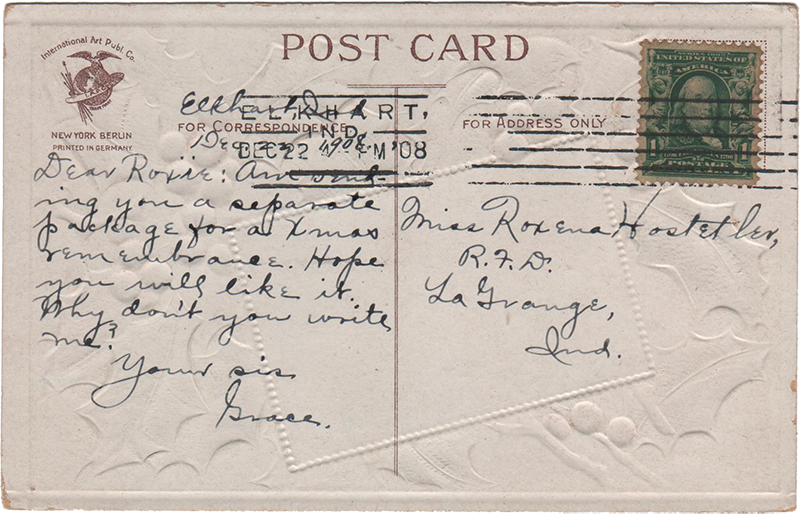 International Art Publ. Co.
NEW YORK BERLIN
PRINTED IN GERMANY
POST CARD
FOR CORRESPONDENCE
FOR ADDRESS ONLY
ELKHART,
IND.
DEC 22 PM '08
UNITED STATES OF
AMERICA
1
Elkhart, Ind
Dec. 22, 1908.
Dear Roxie: Am send-
ing you a separate
package for a Xmas
remembrance. Hope
you will like it.
Why don't you write
me?
Your sis
Grace.
Miss Roxena Hostetler,
R.F.D.
LaGrange,
Ind.